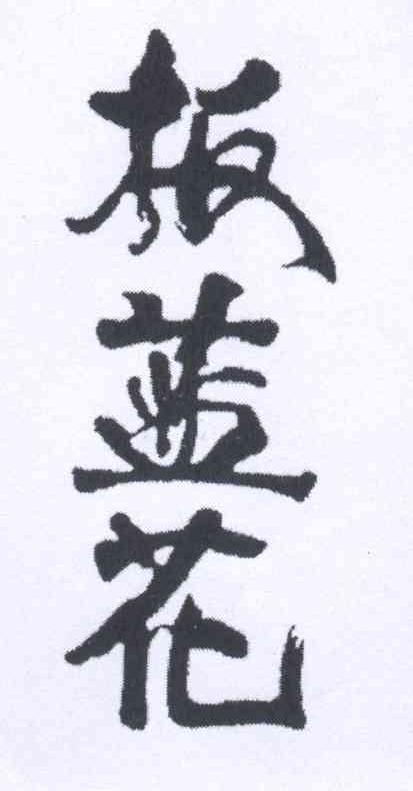 板蓝花